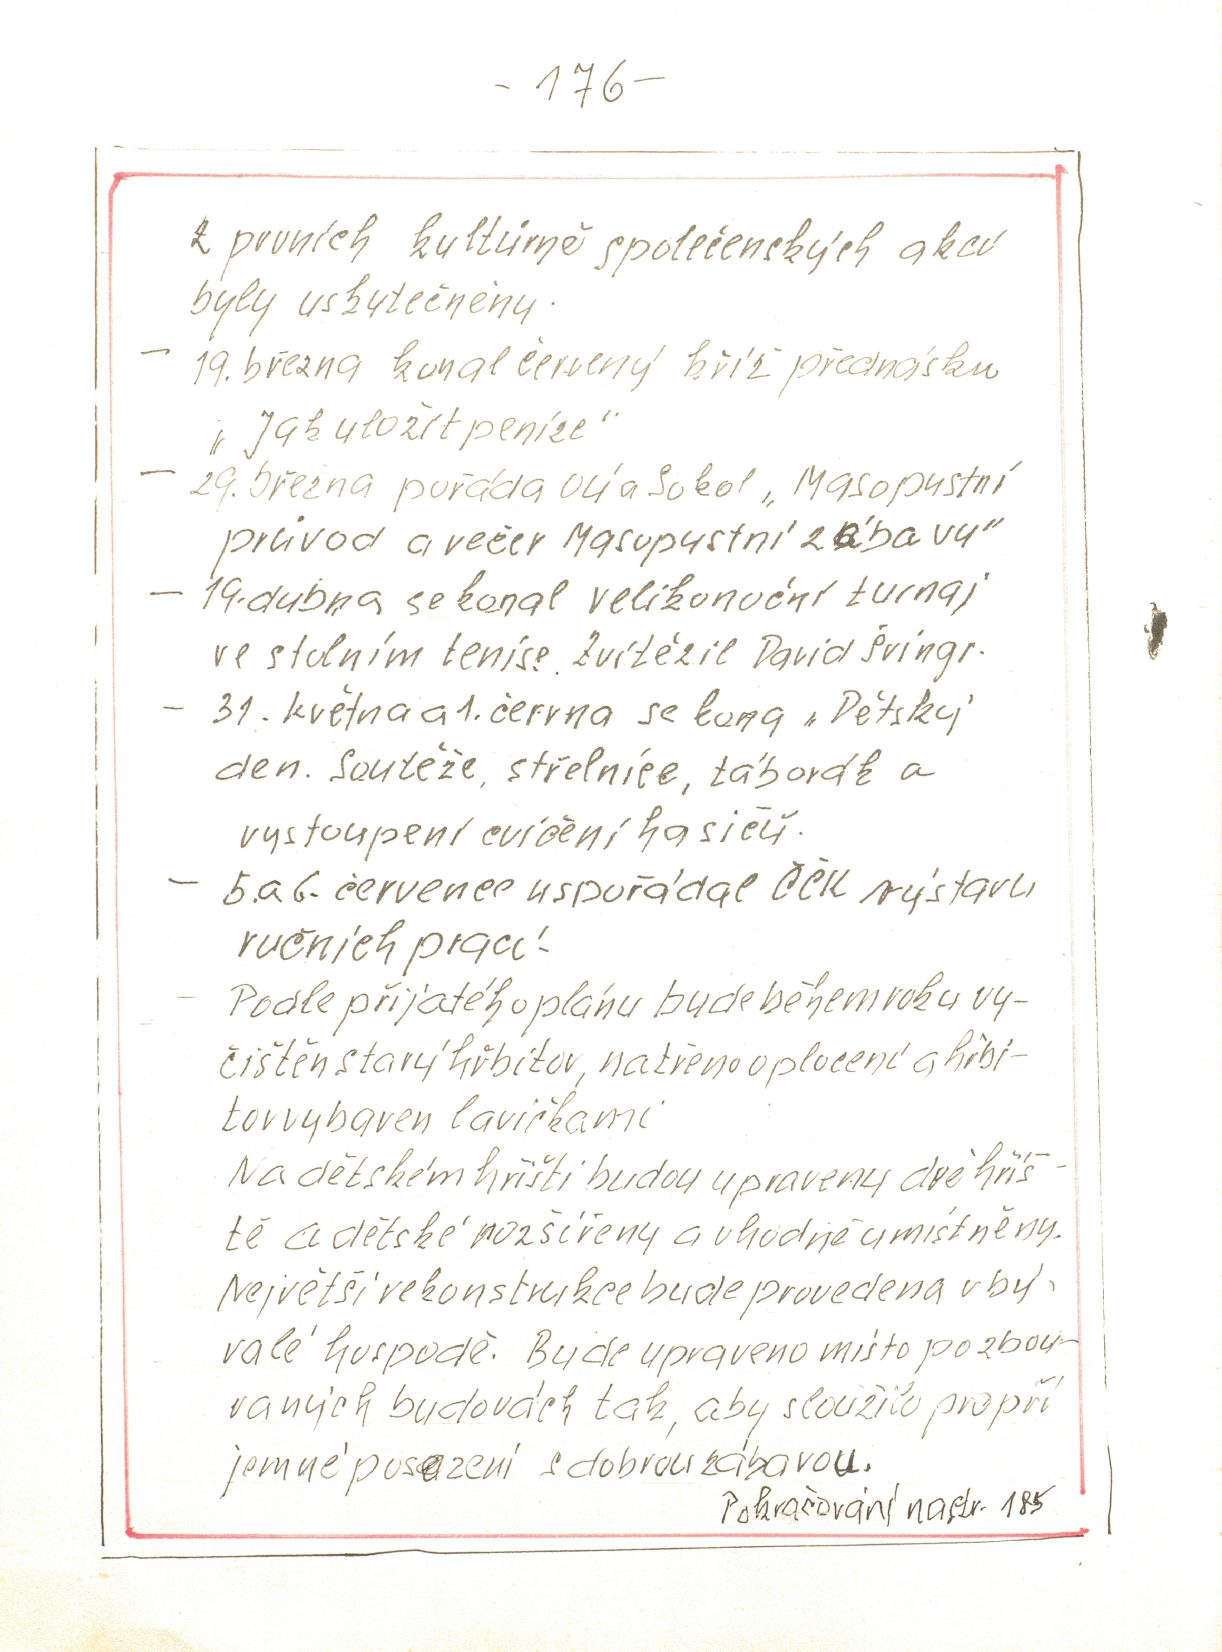 - 176 -
Z prvních kulturně společenských akcí
byly uskutečněny.
- 19. března konal červený kříž přednášku
„Jak uložit peníze"
- 29. března pořádá OÚ a Sokol „Masopustní
průvod a večer Masopustní zábavu"
- 19. dubna se konal velikonoční turnaj
ve stolním tenise. Zvítězil David Švingr.
- 31. května a 1. června se koná „Dětský
den. Soutěže, střelnice, táborák a
vystoupení cvičění hasičů.
- 5. a 6. července uspořádal ČČK výstavu
ručních prací.
- Podle přijatého plánu bude během roku vy-
čištěn starý hřbitov, natřeno oplocení a hřbi-
tov vybaven lavičkami
Na dětském hřišti budou upraveny dvě hřiš-
tě a dětské rozšířeny a vhodně umístněny.
Největší rekonstrukce bude provedena v bý-
valé hospodě. Bude upraveno místo po zbou-
raných budovách tak, aby sloužilo pro pří
jemné posezení s dobrou zábavou.
Pokračování na str. 185